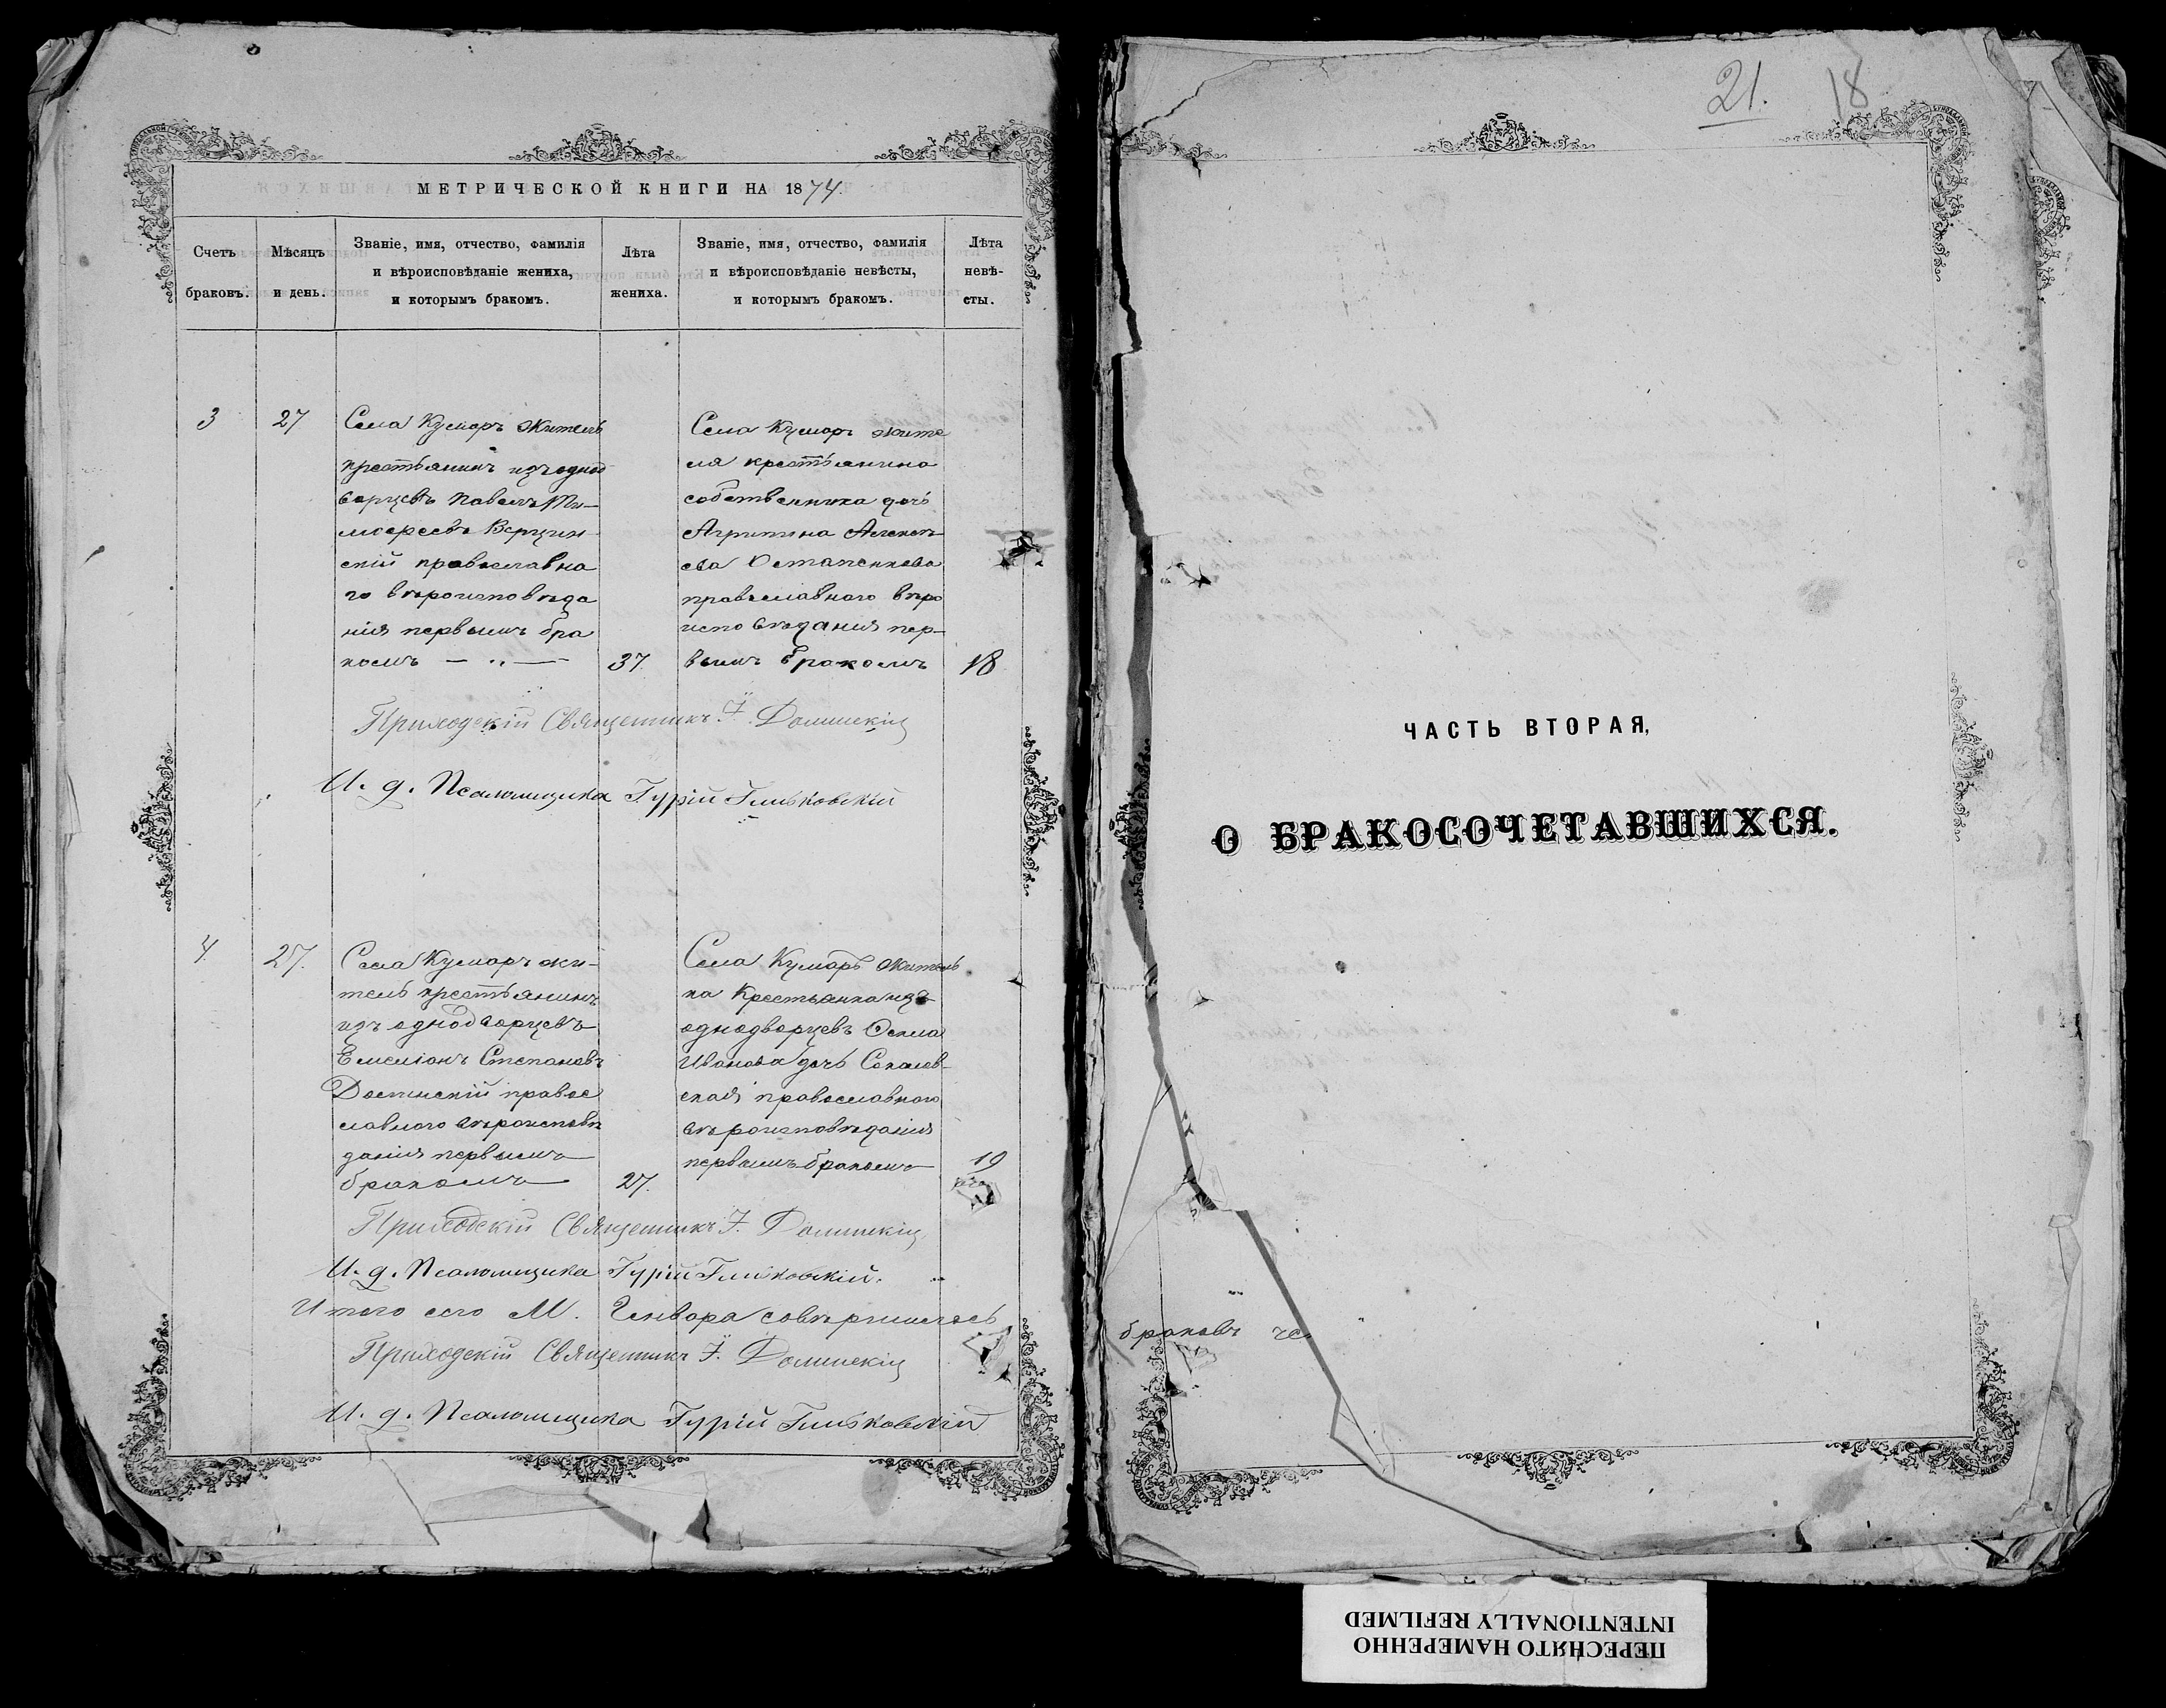 МЕТРИЧЕСКОЙ КНИГИ НА 1874.
Счетъ браковъ.
Мѣсяцъ и день.
Званіе, имя, отчество, фамилія
и вѣроисповѣданіе жениха,
и которымъ бракомъ.
Лѣта
жениха.
Званіе, имя, отчество, фамилія
и вѣроисповѣданіе невѣсты,
и которымъ бракомъ.
Лѣта
невѣ-
сты.
3
27
Села Кумаръ житель
крестьянинъ изъ одно
дворцевъ Павелъ Ти-
мофеевъ
скій православна
го вѣроисповѣда
нія первымъ бра
комъ — „ —
37.
Села Кумаръ жите
ля крестьянина
собственника дочь
Агрипина Алексѣ
ева Остапенкова
православного вѣро
исповѣданія пер-
вымъ бракомъ
18
Приходскій Священникъ І. Долинскій
И. д. Псаломщика Гурій Гиньковскій
4
27.
Села Кумаръ жи-
тель крестьянинъ
изъ однодворцевъ
Емеліанъ Степановъ
правос
лавного вѣроисповѣ
данія первымъ
бракомъ
27.
Села Кумаръ житель
ка Крестьянка изъ
однодворцевъ
Иванова дочь Соколов-
ская православного
вѣроисповѣданія
первымъ бракомъ
19
Приходскій Священникъ І. Долинскій
И. д. Псаломщика Гурій Гиньковскій.
Итого сего М. Генвара совершилось
Приходскій Священникъ І. Долинскій
И. д. Псаломщика Гурій Гиньковскій
21.
18
ЧАСТЬ ВТОРАЯ,
О БРАКОСОЧЕТАВШИХСЯ.
браковъ че
ПЕРЕСНЯТО НАМЕРЕННО
INTENTIONALLY REFILMED